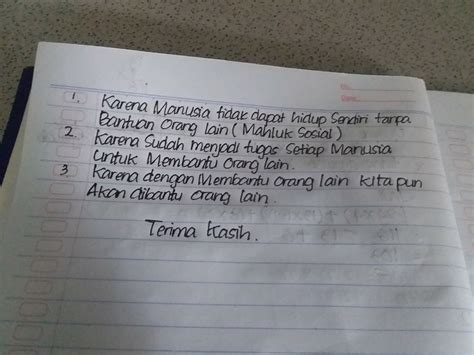 1. Karena Manusia tidak dapat hidup Sendiri tanpa
Bantuan Orang lain ( Mahluk Sosial )
2. Karena Sudah menjadi tugas Setiap Manusia
Untuk Membantu Orang lain.
3. Karena dengan Membantu Orang lain kita pun
Akan dibantu Orang lain.
Terima Kasih.